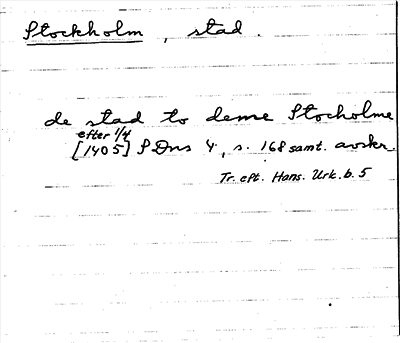 Stockholm, stad.
de stad to deme Stocholme
efter 1/4
[1405] SDns 4, s. 168 samt. avskr.
Tr. eft. Hans. Urk. b. 5